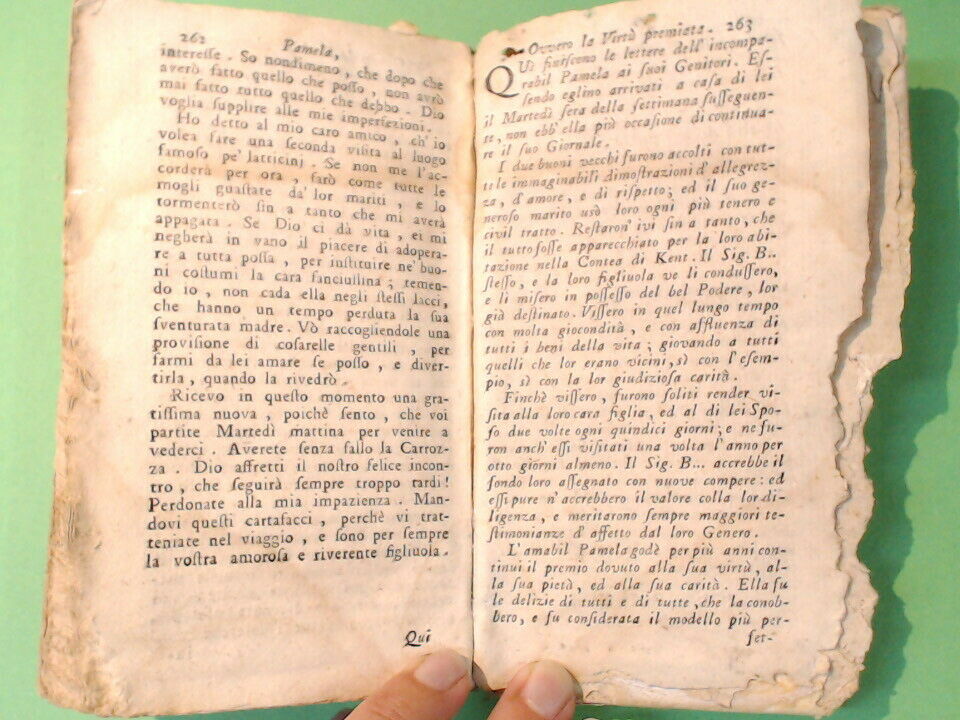 262 Pamela,
interesse. So nondimeno, che dopo che
averò fatto quello che posso, non avrò
mai fatto tutto quello che debbo. Dio
voglia supplire alle mie imperfezioni.
Ho detto al mio caro amico, ch'io
volea fare una seconda visita al luogo
famoso pe' latticinj. Se non me l'ac-
corderà per ora, farò come tutte le
mogli guastate da' lor mariti, e lo
tormenterò sin a tanto che mi averà
appagata. Se Dio ci dà vita, ei mi
negherà in vano il piacere di adopera-
re a tutta possa, per instituire ne' buo-
ni costumi la cara fanciullina; temen-
do io, non cada ella negli stessi lacci,
che hanno un tempo perduta la sua
sventurata madre. Vò raccogliendole una
provisione di cosarelle gentili, per
farmi da lei amare se posso, e diver-
tirla, quando la rivedrò.
Ricevo in questo momento una gra-
tissima nuova, poichè sento, che voi
partite Martedì mattina per venire a
vederci. Averete senza fallo la Carroz-
za. Dio affretti il nostro felice incon-
tro, che seguirà sempre troppo tardi!
Perdonate alla mia impazienza. Man-
dovi questi cartafacci, perchè vi trat-
teniate nel viaggio, e sono per sempre
la vostra amorosa e riverente figliuola.
Qui
Ovvero la Virtù premiata. 263
QUì finiscono le lettere dell' incompa-
rabil Pamela ai suoi Genitori. Es-
sendo eglino arrivati a casa di lei
il Martedì sera della settimana susseguen-
te, non ebb'ella più occasione di continua-
re il suo Giornale.
I due buoni vecchi furono accolti con tut-
te le immaginabili dimostrazioni d' allegrez-
za, d'amore, e di rispetto; ed il suo ge-
neroso marito usò loro ogni più tenero e
civil tratto. Restaron' ivi sin a tanto, che
il tutto fosse apparecchiato per la loro abi-
tazione nella Contea di Kent. Il Sig. B..
stesso, e la loro figliuola ve li condussero,
e li misero in possesso del bel Podere, lor
già destinato. Vissero in quel lungo tempo
con molta giocondità, e con affluenza di
tutti i beni della vita; giovando a tutti
quelli che lor erano vicini, sì con l'esem-
pio, sì con la lor giudiziosa carità.
Finchè vissero, furono soliti render vi-
sita alla loro cara figlia, ed al di lei Spo-
so due volte ogni quindici giorni; e ne fu-
ron anch'essi visitati una volta l'anno per
otto giorni almeno. Il Sig. B... accrebbe il
fondo loro assegnato con nuove compere: ed
essi pure n'accrebbero il valore colla lor di-
ligenza, e meritarono sempre maggiori te-
stimonianze d' affetto dal loro Genero.
L'amabil Pamela godè per più anni con-
tinui il premio dovuto alla sua virtù, al-
la sua pietà, ed alla sua carità. Ella fu
le delizie di tutti e di tutte, che la conob-
bero, e fu considerata il modello più per-
fet-